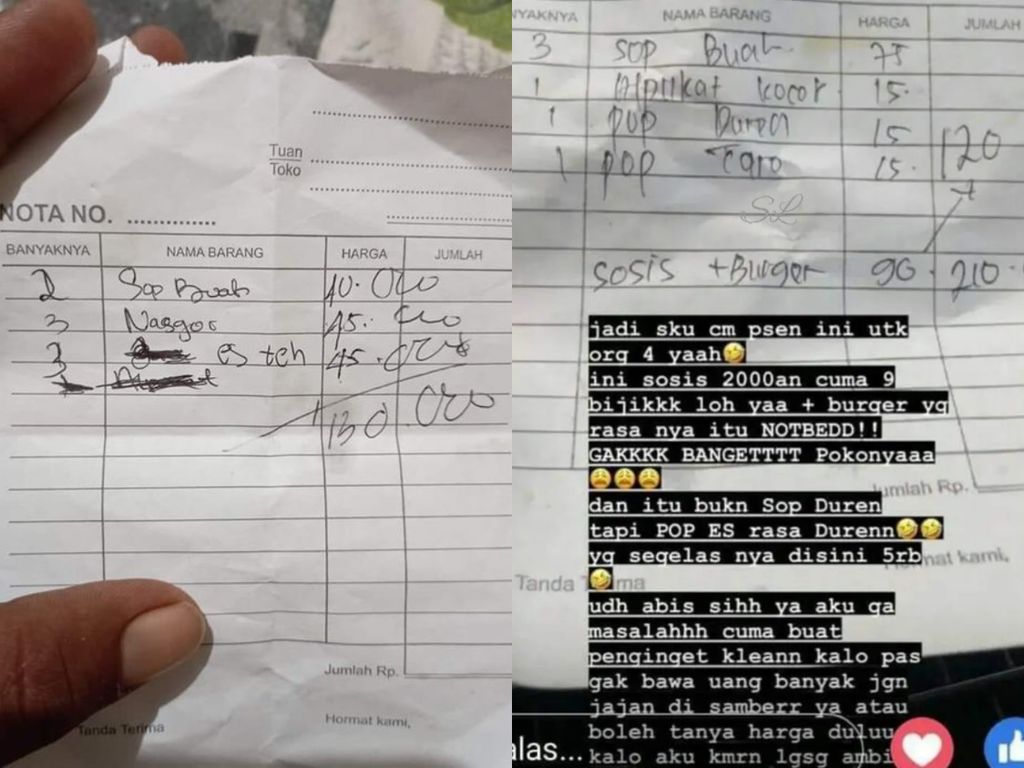 Tuan
Toko
NOTA NO. ................
BANYAKNYA NAMA BARANG HARGA JUMLAH
2 Sop Buah 40.000
3 Nasgor 45.000
3 es teh 45.000
130.000
Jumlah Rp.
Tanda Terima Hormat kami,
NYAKNYA NAMA BARANG HARGA JUMLAH
3 SOP Buah 75
1 Alpukat kocor 15.
1 POP Duren 15
1 POP Taro 15.
120
SL
SOSIS + Burger 90. 210.
jadi sku cm psen ini utk
org 4 yaah🤣
ini sosis 2000an cuma 9
bijikkk loh yaa + burger yg
rasa nya itu NOTBEDD!!
GAKKKK BANGETTTT Pokonyaaa
😩😩😩
Jumlah Rp.
dan itu bukn Sop Duren
tapi POP ES rasa Durenn🤣🤣
yg segelas nya disini 5rb
🤣
Hormat kami,
Tanda Terima
udh abis sihh ya aku ga
masalahhh cuma buat
penginget kleann kalo pas
gak bawa uang banyak jgn
jajan di samberr ya atau
boleh tanya harga duluu
kalo aku kmrn lgsg ambi
alas...